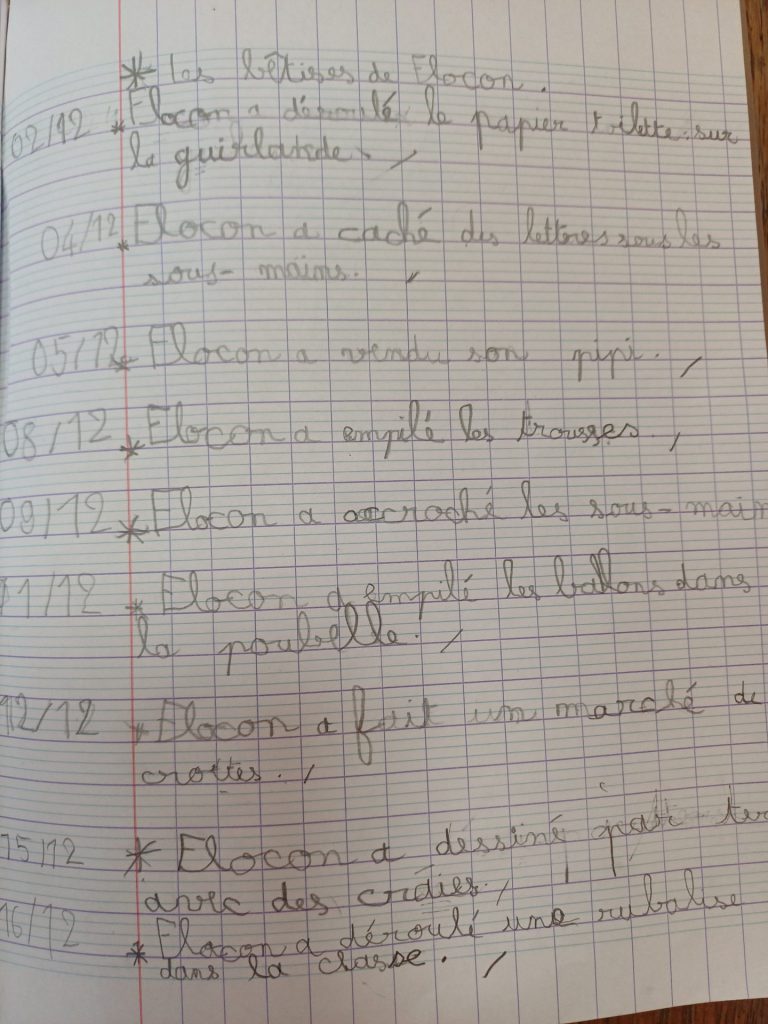 * Les bêtises de Flocon.
02/12 * Flocon a déroulé le papier toilette sur
la guirlande.
04/12 * Flocon a caché des lettres sous les
sous-mains.
05/12 * Flocon a vendu son pipi.
08/12 * Flocon a empilé les trousses
09/12 * Flocon a accroché les sous-main
11/12 * Flocon a empilé les ballons dans
la poubelle.
12/12 * Flocon a fait un marché de
crottes.
15/12 * Flocon a dessiné par ter
avec des craies.
16/12 * Flocon a déroulé une rubalise
dans la classe.